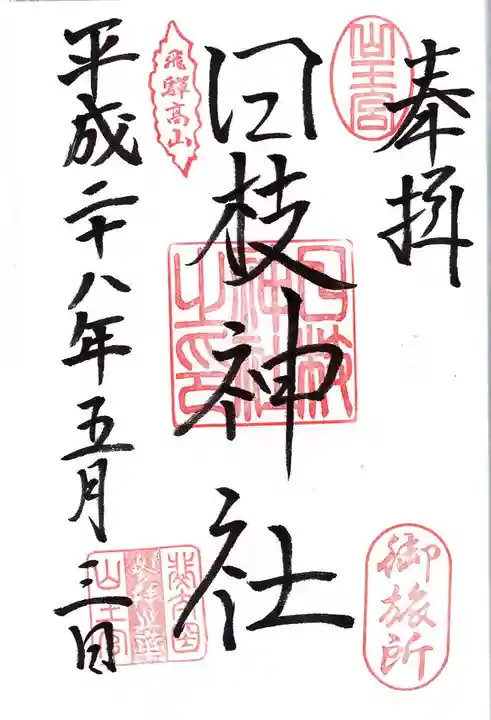 奉拝
山王宮
御旅所
日枝神社
日枝
神社
之印
飛騨高山
平成二十八年五月三日
山王宮